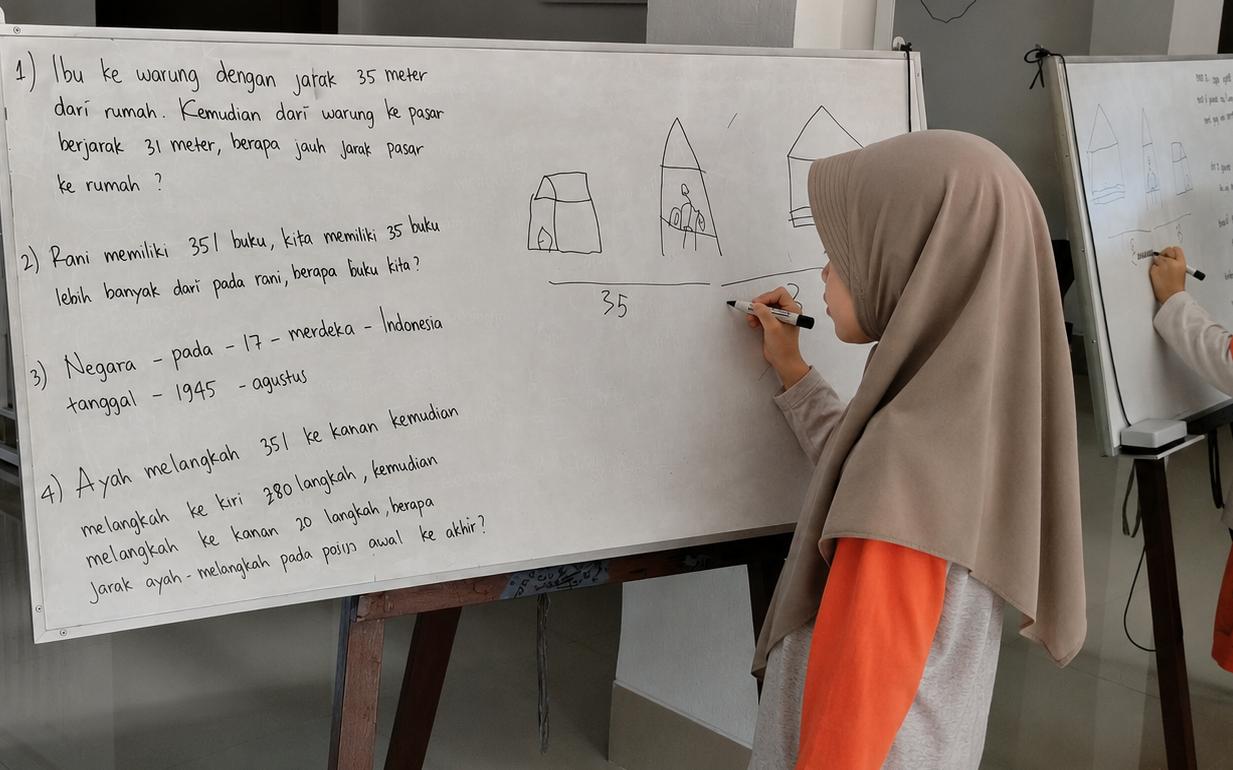 1) Ibu ke warung dengan jarak 35 meter
dari rumah. Kemudian dari warung ke pasar
berjarak 31 meter, berapa jauh jarak pasar
ke rumah ?
2) Rani memiliki 351 buku, kita memiliki 35 buku
lebih banyak dari pada rani, berapa buku kita?
3) Negara - pada - 17 - merdeka - Indonesia
tanggal - 1945 - agustus
4) Ayah melangkah 351 ke kanan kemudian
melangkah ke kiri 280 langkah, kemudian
melangkah ke kanan 20 langkah, berapa
jarak ayah - melangkah pada posisi awal ke akhir?
35
3